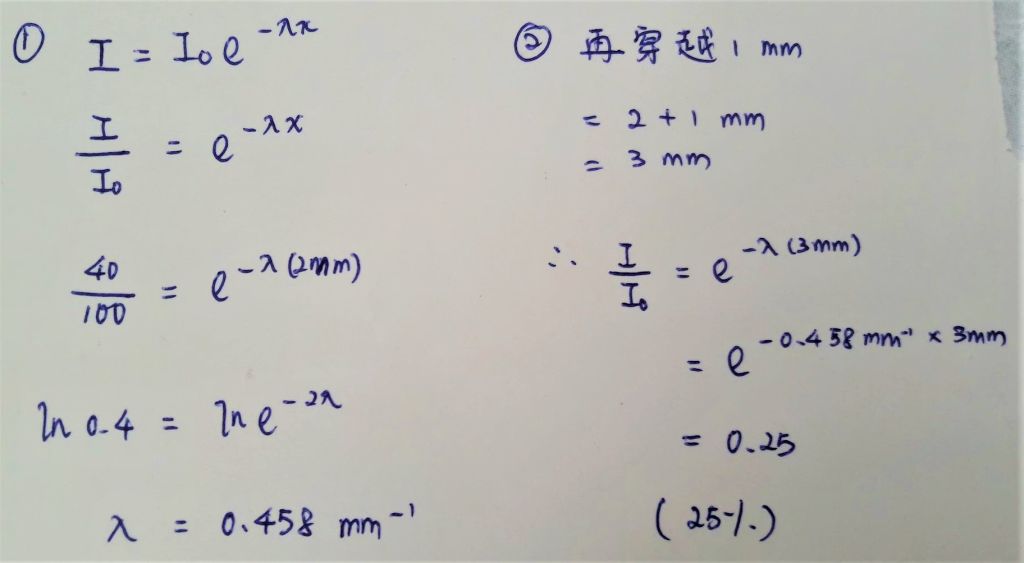 ① I = I₀e^(-λx)
I/I₀ = e^(-λx)
40/100 = e^(-λ(2mm))
ln 0.4 = ln e^(-2λ)
λ = 0.458 mm⁻¹
② 再穿越 1 mm
= 2 + 1 mm
= 3 mm
∴ I/I₀ = e^(-λ(3mm))
= e^(-0.458 mm⁻¹ × 3mm)
= 0.25
(25%)